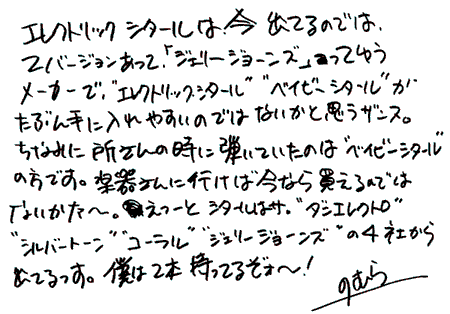 エレクトリックシタールは、今出てるのでは、
2バージョンあって、「ジェリージョーンズ」ってゆう
メーカーで、"エレクトリックシタール" "ベイビーシタール"が
たぶん手に入れやすいのではないかと思うザンス。
ちなみに所さんの時に弾いていたのは"ベイビーシタール"
の方です。楽器さんに行けば今なら買えるのでは
ないかな〜。えーっとシタールはサ。"ダンエレクトロ"
"シルバートーン" "コーラル" "ジェリージョーンズ"の4社から
出てるっす。僕は2本持ってるぞォ〜!
のむら